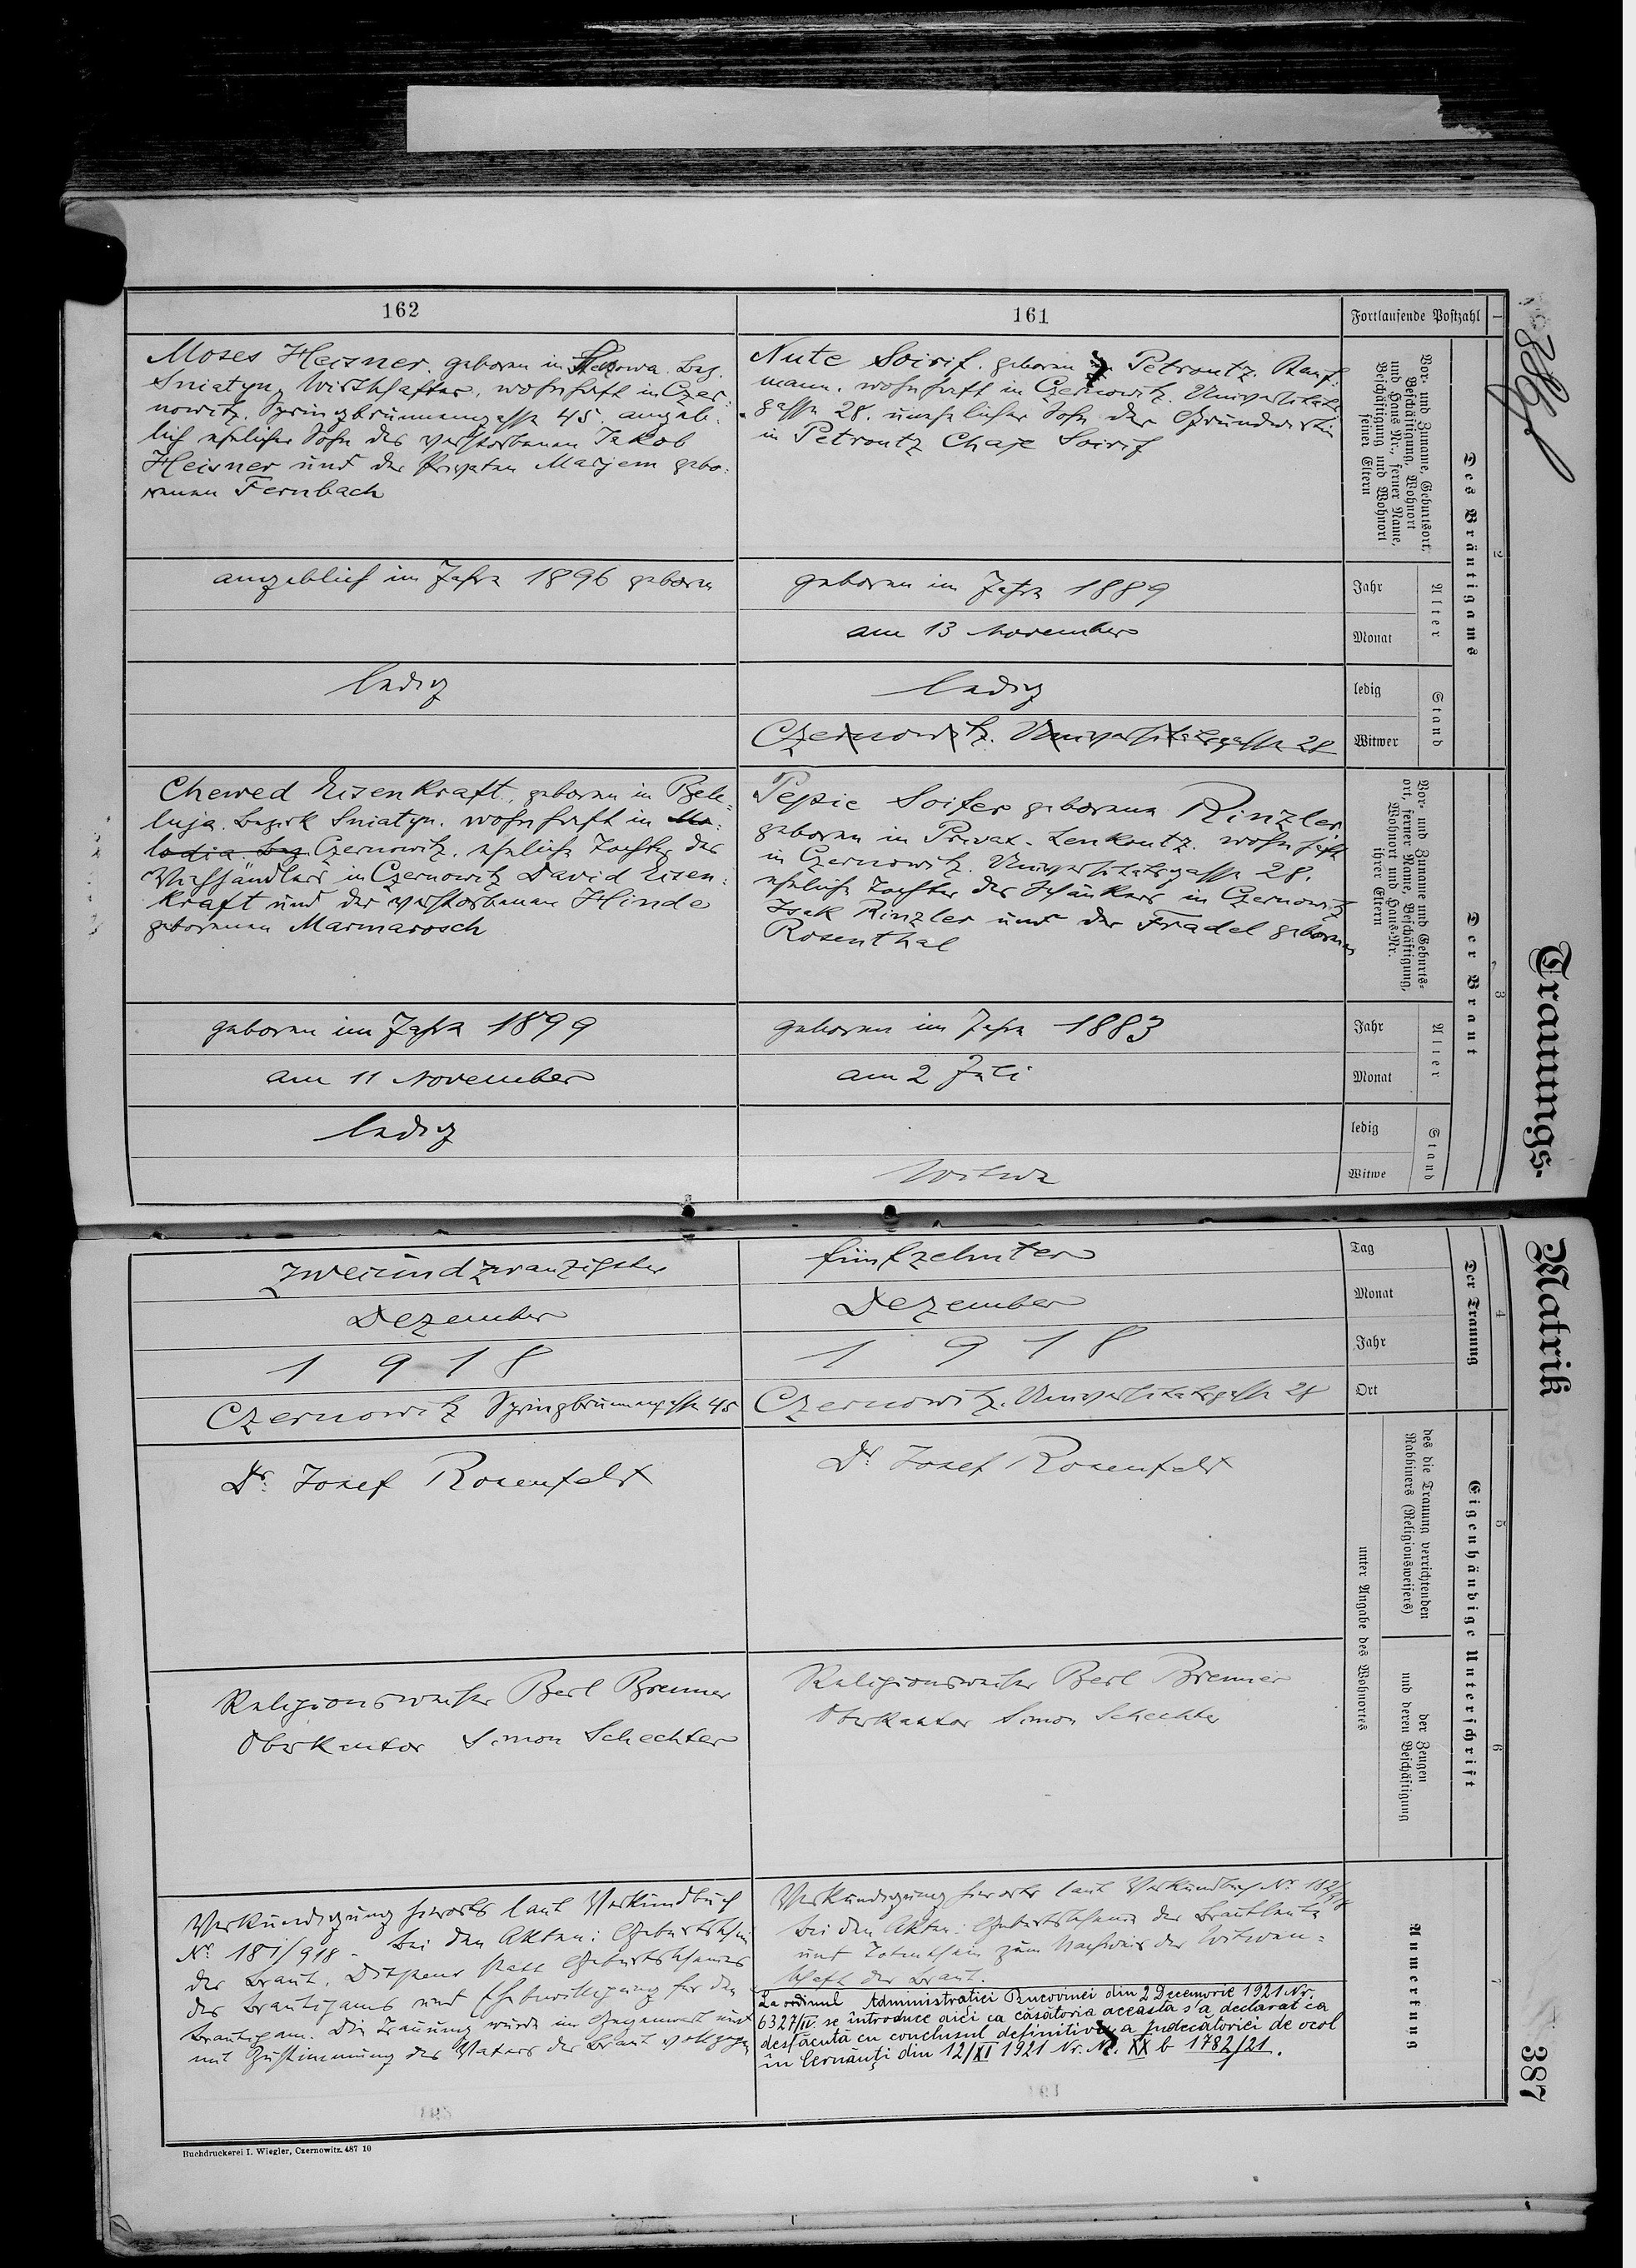 Trauungs-
Matrik
387
1
Fortlaufende Postzahl
161
162
2
Des Bräutigams
Vor- und Zuname, Geburtsort,
Beschäftigung, Wohnort
und Haus Nr., ferner Name,
Beschäftigung und Wohnort
seiner Eltern
Nute Soirif, geboren in Petroutz, Kauf-
mann, wohnhaft in Czernowitz, Universitäts-
gasse 28, unehelicher Sohn der Grundwirtin
in Petroutz Chaje Soirif
Moses Heisner, geboren in Bez.
Sniatyn, Wirthschafter, wohnhaft in Czer-
nowitz, Springbrunnengasse 45, angeb-
lich ehelicher Sohn des verstorbenen Jakob
Heisner und der Privaten Marjem gebo-
renen Fernbach
Alter
Jahr
geboren im Jahre 1889
angeblich im Jahre 1896 geboren
Monat
am 13 November
Stand
ledig
ledig
ledig
Witwer
Czernowitz. Universitätsgasse 28
3
Der Braut
Vor- und Zuname und Geburts-
ort, ferner Name, Beschäftigung,
Wohnort und Haus-Nr.
ihrer Eltern
Pepie Soifer geborene Rinzler,
geboren in Privat-Lenkoutz, wohnhaft
in Czernowitz, Universitätsgasse 28,
eheliche Tochter des Schänkers in Czernowitz
Isak Rinzler und der Fradel geborenen
Rosenthal
Chewed Eisenkraft, geboren in Bele-
luja, Bezirk Sniatyn, wohnhaft in Ma-
lodia Bez. Czernowitz, eheliche Tochter des
Viehhändlers in Czernowitz David Eisen-
kraft und der verstorbenen Hinde
geborenen Marmarosch
Alter
Jahr
geboren im Jahre 1883
geboren im Jahre 1899
Monat
am 2 Juli
am 11 November
Stand
ledig
ledig
Witwe
Witwe
4
Der Trauung
Tag
fünfzehnter
zweiundzwanzigster
Monat
Dezember
Dezember
Jahr
1918
1918
Ort
Czernowitz. Universitätsgasse 28
Czernowitz Springbrunnengasse 45
5
Eigenhändige Unterschrift
des die Trauung verrichtenden
Rabbiners (Religionsweisers)
unter Angabe des Wohnortes
Dr. Josef Rosenfeld
Dr. Josef Rosenfeld
6
der Zeugen
und deren Beschäftigung
Religionsweiser Berl Brenner
Oberkantor Simon Schechter
Religionsweiser Berl Brenner
Oberkantor Simon Schechter
7
Anmerkung
Verkündigung hierorts laut Verkündbuch Nr. 182/918
Bei den Akten: Geburtsscheine der Brautleute
und Totenschein zum Nachweis der Witwen-
schaft der Braut.
La ordinul Administratiei Bucovinei din 2 Decemvrie 1921 Nr.
6327/IV se introduce aici ca căsătoria aceasta s'a declarat ca
desfăcută cu conclusul definitiv a judecătoriei de ocol
în Cernăuți din 12/XI 1921 Nr. XX b 1782/21.
Verkündigung hierorts laut Verkündbuch
No. 181/918 - Bei den Akten: Geburtsschein
der Braut, Dispens statt Geburtsscheines
des Bräutigams und Ehebewilligung für den
Bräutigam. Die Trauung wurde im Gegenwart und
mit Zustimmung des Vaters der Braut vollzogen
Buchdruckerei I. Wiegler, Czernowitz. 487 10